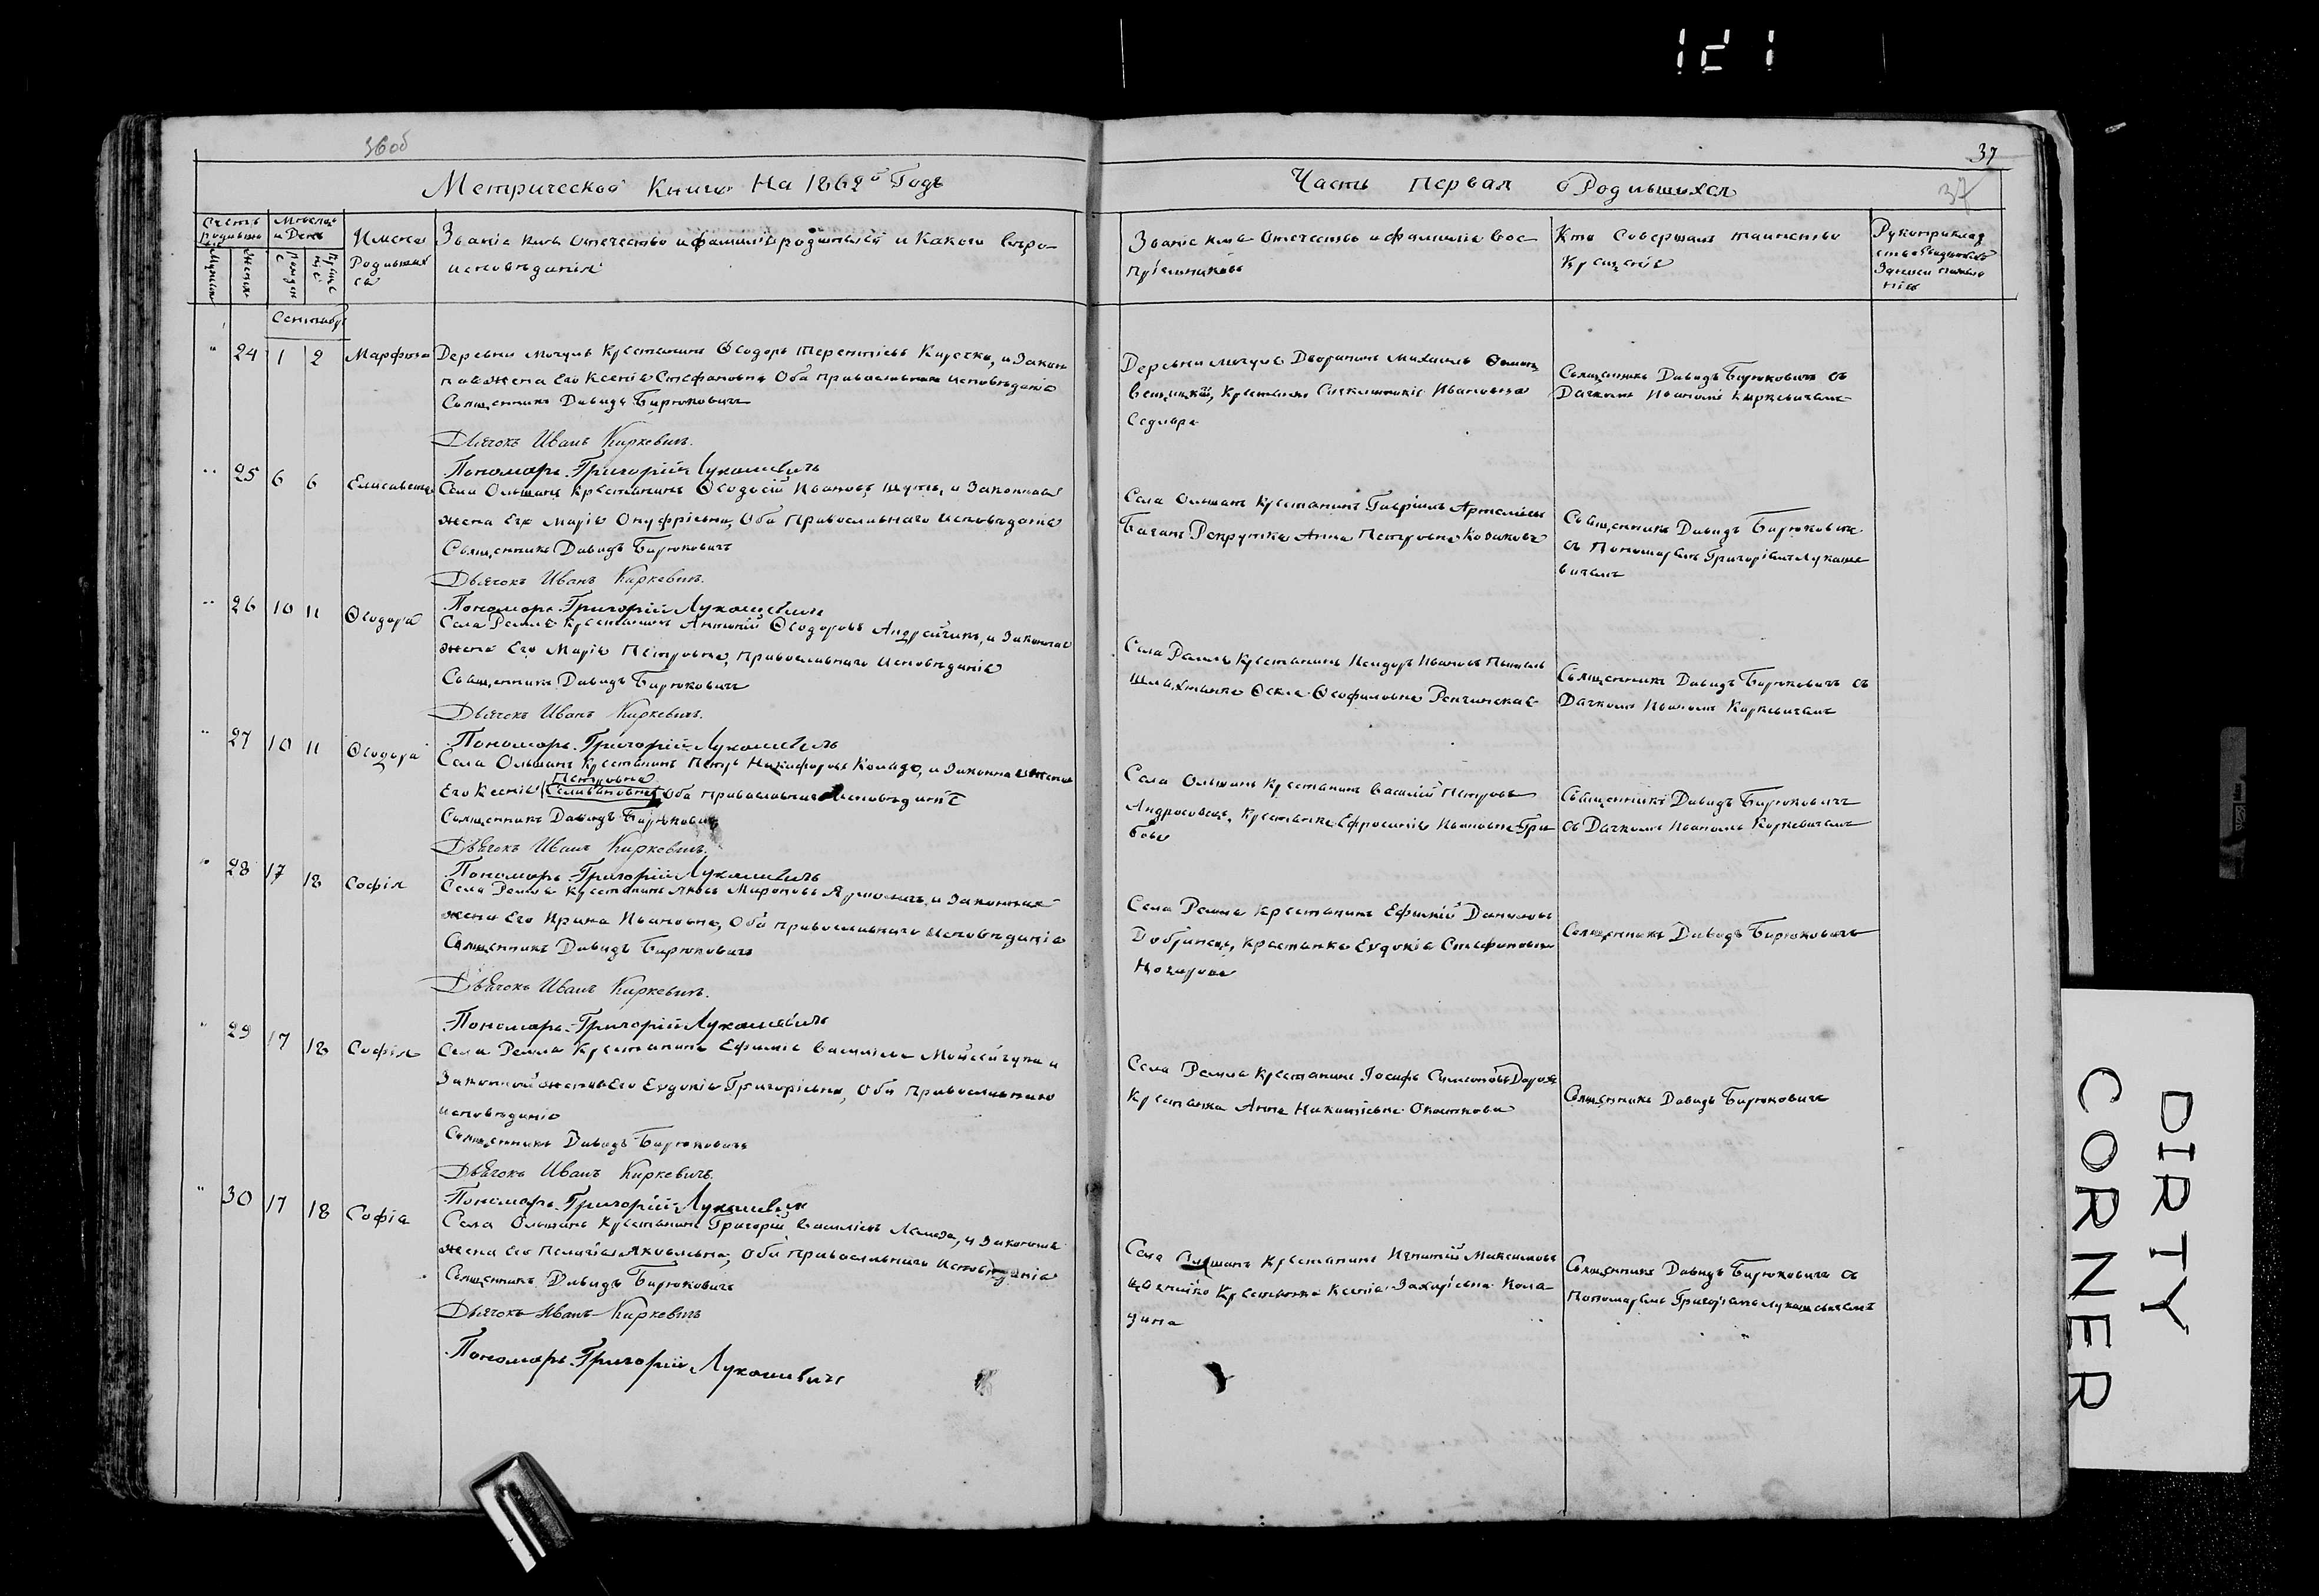 121
36об
37
37
Метрической Книги На 1862й Годъ
Часть Первая о Родившихся
Счетъ родивши
Мѣсяцъ и День
Имена Родивших ся
Званіе Имя Отечество и фамилія родителей и Какого вѣро-
исповѣданія
Званіе имя Отечество и фамилія Вос-
пріемниковъ
Кто Совершалъ таинство
Крещенія
Рукоприклад
Сентябр
24 1 2 Марфа
Деревни Мочуль Крестьянинъ Ѳеодоръ Терентіевъ Киречко, и Закон
ная жена Его Ксенія Стефановна Оба православнаго исповѣданія
Священникъ Давидъ Бирюковичъ
Дьячокъ Иванъ Киркевичъ.
Пономарь Григорій Лукашевичъ
Деревни Мочуль Дворянинъ Михаилъ
Крестьянка Ивановна
Священникъ Давидъ Бирюковичъ съ
Дьячкомъ Иваномъ Киркевичемъ
25 6 6 Елисавета
Села Ольшанъ Крестьянинъ Ѳеодосій Ивановъ Шуть, и Законная
жена Его Марія Онуфріевна, Оба Православнаго исповѣданія
Священникъ Давидъ Бирюковичъ
Дьячокъ Иванъ Киркевичъ.
Пономарь Григорій Лукашевичъ
Села Ольшанъ Крестьянинъ Гавріилъ
Анна Петровна
Священникъ Давидъ Бирюковичъ
съ Пономаремъ Григоріемъ Лукаше
вичемъ
26 10 11 Ѳеодора
Села Ремля Крестьянинъ Антоній Ѳеодоровъ Андрейчикъ, и Законная
жена Его Марія Петровна, Православнаго Исповѣданія
Священникъ Давидъ Бирюковичъ
Дьячокъ Иванъ Киркевичъ.
Пономарь Григорій Лукашевичъ
Села Ремля Крестьянинъ Исидоръ Ивановъ
Шляхтянка Ѳекла Ѳеофиловна
Священникъ Давидъ Бирюковичъ съ
Дьячкомъ Иваномъ Киркевичемъ
27 10 11 Ѳеодора
Села Ольшанъ Крестьянинъ Петръ Никифоровъ Коляда, и Законная жена
Петровна
Его Ксенія Селивановна Оба православнаго Исповѣданія
Священникъ Давидъ Бирюковичъ
Дьячокъ Иванъ Киркевичъ.
Пономарь Григорій Лукашевичъ
Села Ольшанъ Крестьянинъ Василій Петровъ
Андросовецъ, Крестьянка Ефросинія Ивановна Гри-
бова
Священникъ Давидъ Бирюковичъ
съ Дьячкомъ Иваномъ Киркевичемъ
28 17 18 Софія
Села Ремля Крестьянинъ Яковъ Мироновъ Ярмоличъ, и Законная
жена Его Ирина Ивановна, Оба православнаго исповѣданія
Священникъ Давидъ Бирюковичъ
Дьячокъ Иванъ Киркевичъ.
Пономарь Григорій Лукашевичъ
Села Ремля Крестьянинъ Ефимій Даниловъ
Добринецъ, Крестьянка Евдокія Стефановна
Священникъ Давидъ Бирюковичъ
29 17 18 Софія
Села Ремля Крестьянинъ Ефимій Васильевъ Мойсейчукъ и
Законная жена Его Евдокія Григоріевна, Оба Православнаго
исповѣданія
Священникъ Давидъ Бирюковичъ
Дьячокъ Иванъ Киркевичъ.
Пономарь Григорій Лукашевичъ
Села Ремля Крестьянинъ Іосифъ Симеоновъ
Крестьянка Анна
Священникъ Давидъ Бирюковичъ
30 17 18 Софія
Села Ольшанъ Крестьянинъ Григорій Васильевъ Ламеза, и Законная
жена Его Пелагія Яковлевна, Оба православнаго исповѣданія
Священникъ Давидъ Бирюковичъ
Дьячокъ Иванъ Киркевичъ
Пономарь Григорій Лукашевичъ
Села Ольшанъ Крестьянинъ Игнатій Максимовъ
Крестьянка Ксенія Захаріевна Коля-
дина
Священникъ Давидъ Бирюковичъ съ
Пономаремъ Григоріемъ Лукашевичемъ
DIRTY
CORNER